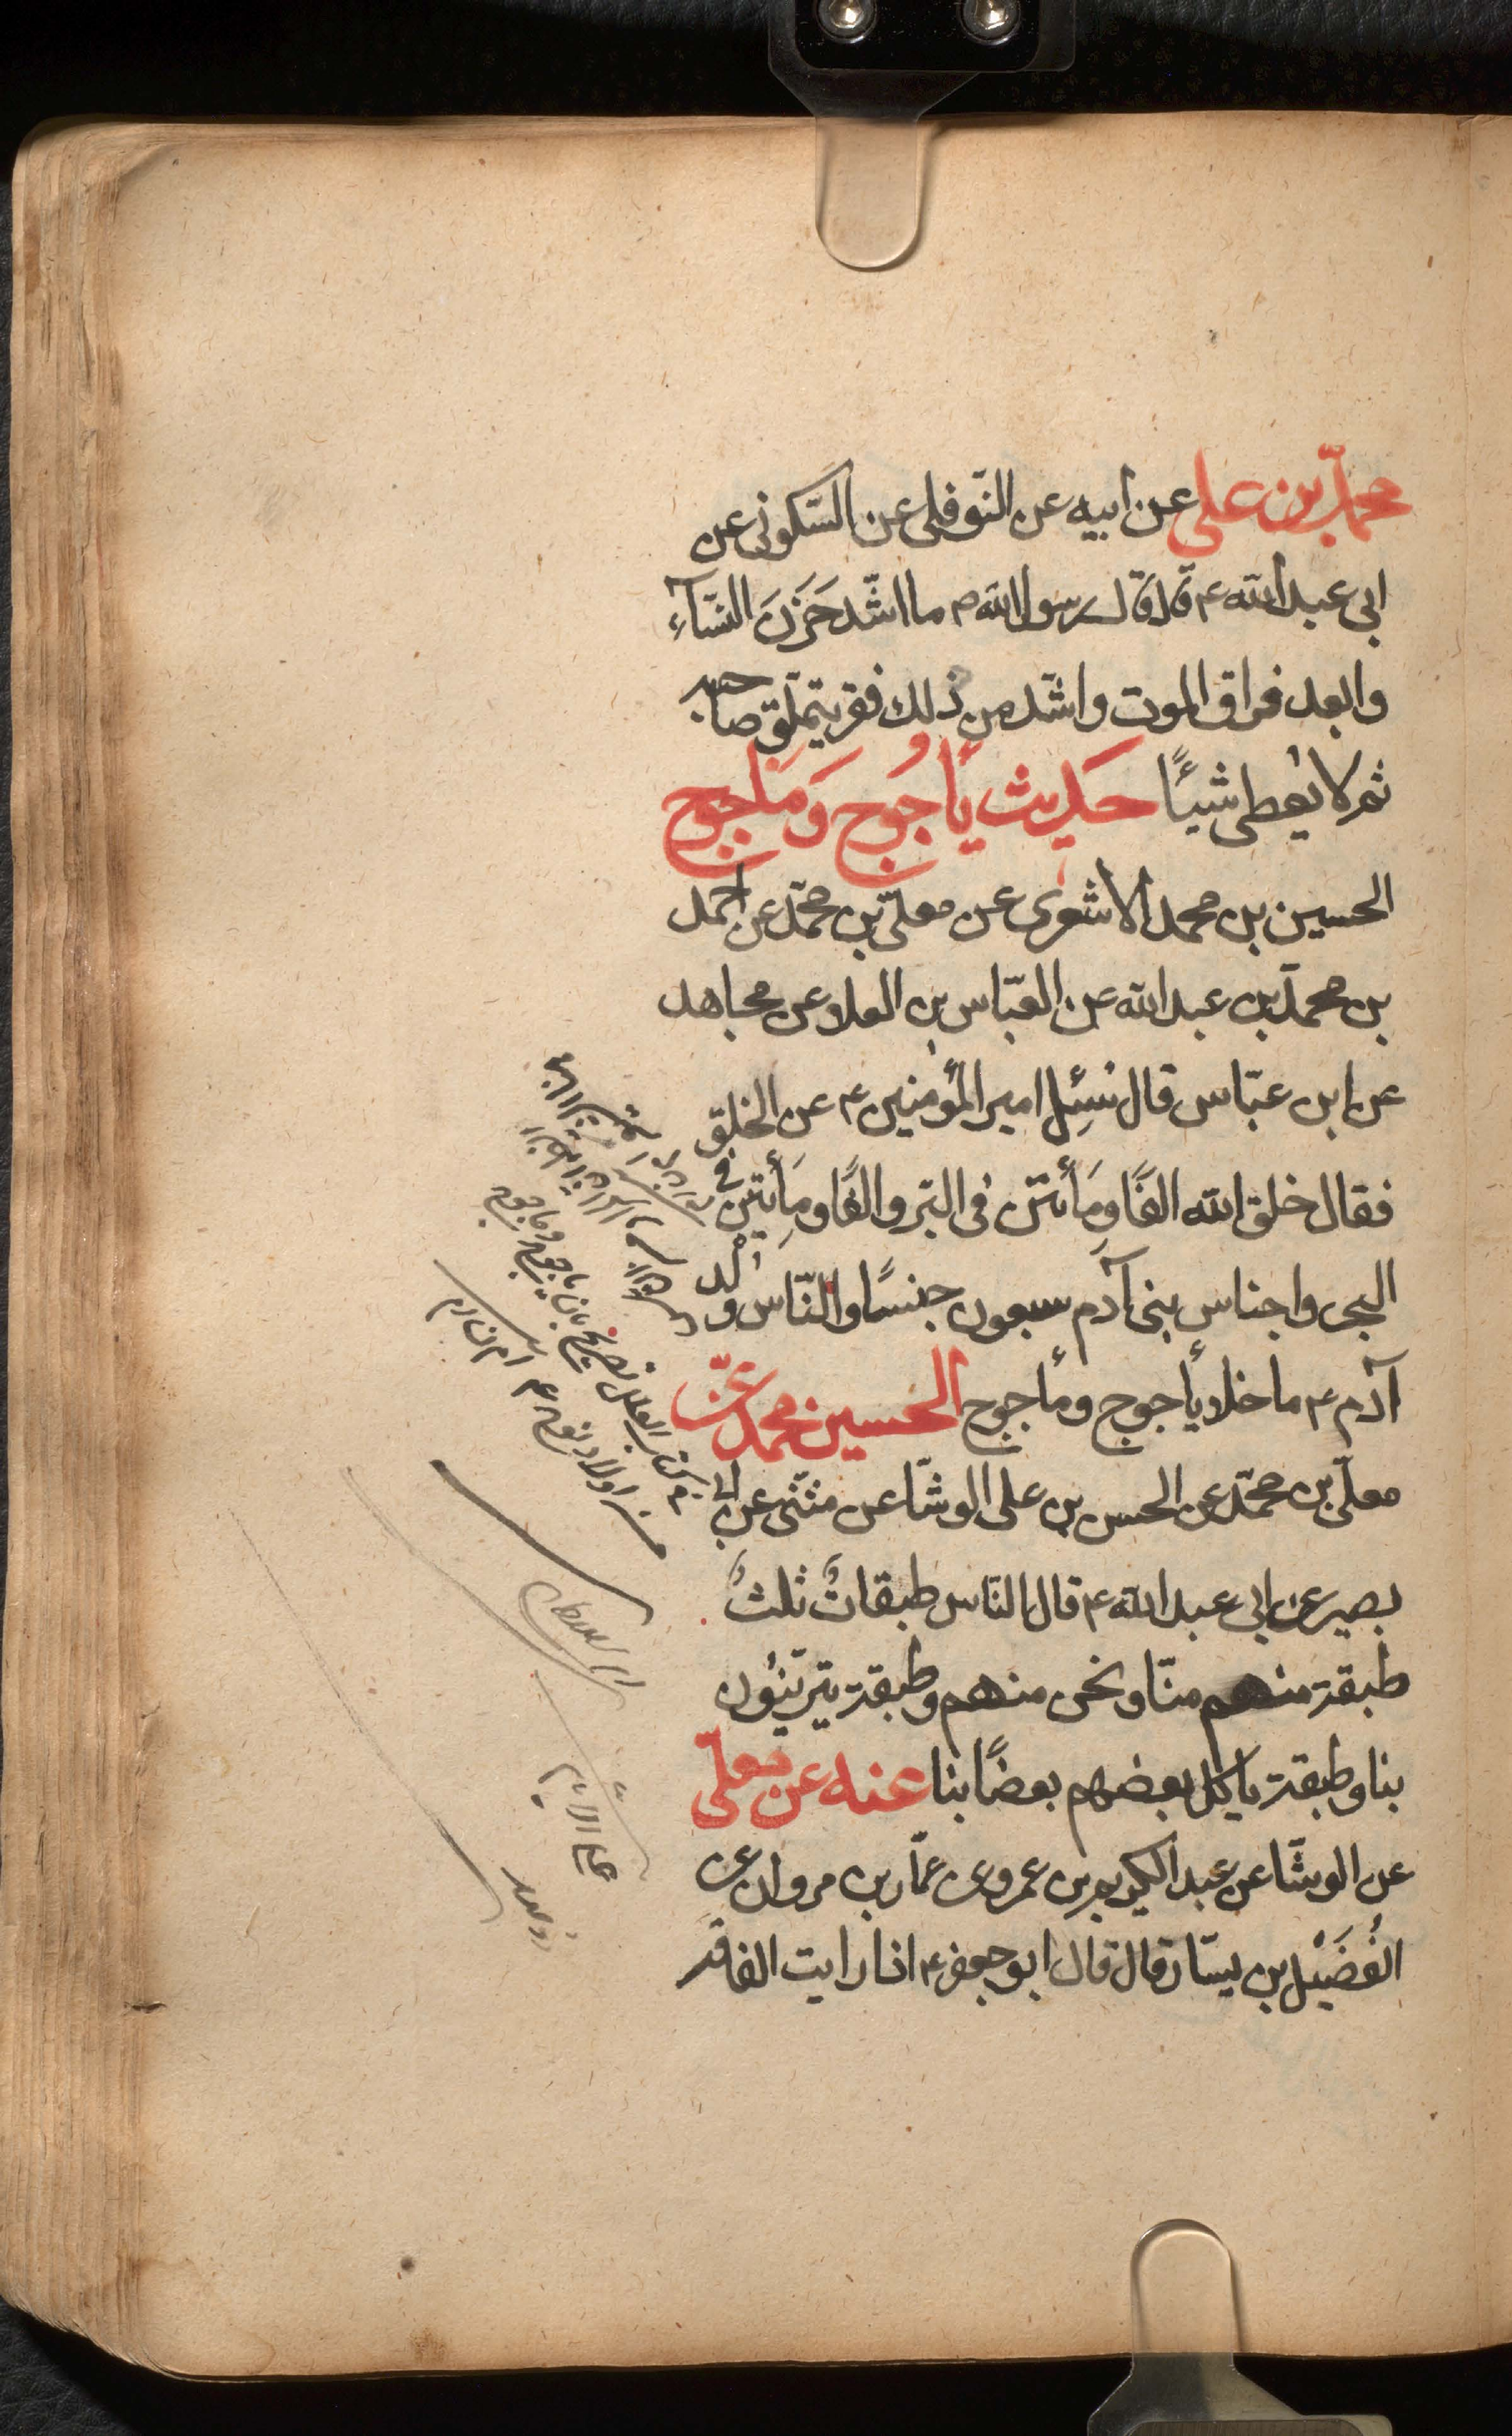 محمّد بن علي عن ابيه عن النّوفلى عن السّكونى عن
ابى عبد الله ع قال قال رسول الله ص ما اشّد حَزَنَ النسّآء
وابعد فراق الموت واشّد من ذلك فقر يتملّق صاحبه
ثم لا يُعطى شيئًا حَديث يَأجُوج وَمَأجوج
الحسين بن محمد الاشعرى عن معلّى بن محمّد عن احمد
بن محمّد بن عبد الله عن العبّاس بن العلا عن مجاهد
عن ابن عبّاس قال سُئِل امير المؤمنين ع عن الخلق
فقال خلق الله الفًا ومَأتين فى البّر والفًا ومِأيتين فى
البحر واجناس بنى آدم سبعون جنسًا والنّاس وُلد
آدم ع ما خلا يأجوج ومأجوج الحسين محمد عن
معلّى بن محمّد عن الحسن بن على الوشّا عن مثنّى عن ابى
بصير عن ابى عبد الله ع قال النّاس طبقاتٌ ثلثٌ
طبقة منهم منّا ونحن منهم وطبقة يتزيّنون
بنا وطبقة ياكل بعضهم بعضًا بنا عنه عن معلّى
عن الوشّا عن عبد الكريم بن عمرو عن عمّار بن مروان عن
الفُضَيْل بن يسّار قال قال ابو جعفر ع اذا رايت الفاقه
العلل تصريح بان ياجوج وماجوج
من اولاد نوح ع